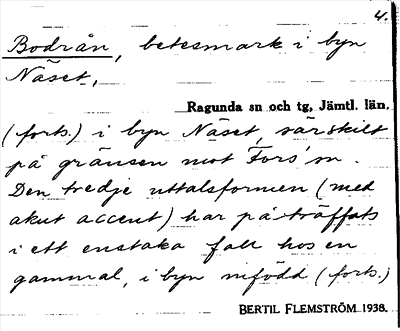 4.
Bodrån, betesmark i byn
Näset,
Ragunda sn och tg, Jämtl. län.
(forts.) i byn Näset, särskilt
på gränsen mot Fors' sn.
Den tredje uttalsformen (med
akut accent) har påträffats
i ett enstaka fall hos en
gammal, i byn infödd (forts.)
BERTIL FLEMSTRÖM 1938.